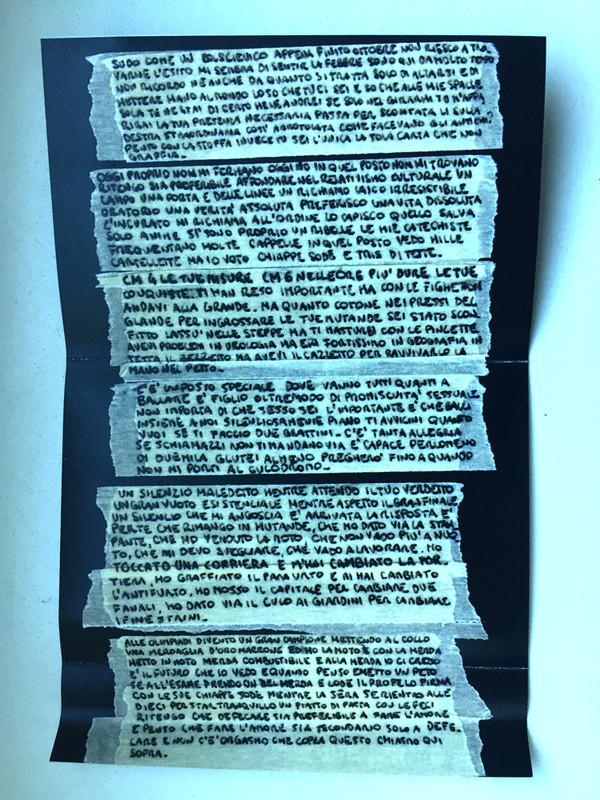 SUDO COME UN BOLSCEVICO APPENA FINITO OTTOBRE NON RIESCO A TRO
VARNE L'ESITO MI SEMBRA DI SENTIR LA FEBBRE SONO QUI DA MOLTO TEMPO
NON RICORDO NEANCHE DA QUANTO SI TRATTA SOLO DI ALZARSI E DI
METTERE MANO AL RONDO LO SO CHE TU CI SEI E SO CHE ALLE MIE SPALLE
SOLA TE NE STAI DI CERTO ME NE ANDREI SE SOLO NEL GIRARMI TU M'APPA
RIRAI LA TUA PRESENZA NECESSARIA PASSA PER SCONTATA LI SULLA
DESTRA STRAORDINARIA COSI' ARROTOLATA COME FACEVANO GLI ALTRI
PENTO CON LA STOFFA INVECE TU SEI L'UNICA LA SOLA CARTA CHE NON
GRAFFIA..
OGGI PROPRIO NON MI FERMANO OGGI NO IN QUEL POSTO NON MI TROVANO
RITENGO SIA PREFERIBILE AFFONDARE NEL RELATIVISMO CULTURALE UN
CAMPO UNA PORTA E DELLE LINEE UN RICHIAMO LAICO IRRESISTIBILE
ORATORIO UNA VERITÀ ASSOLUTA PREFERISCO UNA VITA DISSOLUTA
L'INCURATO MI RICHIAMA ALL'ORDINE LO CAPISCO QUELLO SALVA
SOLO ANIME SI SONO PROPRIO UN RIBELLE LE MIE CATECHISTE
FREQUENTANO MOLTE CAPPELLE IN QUEL POSTO VEDO MILLE
CANCELLETTE MA IO VOTO CHIAPPE SODE E TRIS DI TETTE.
CM 4 LE TUE MISURE CM 6 NELLE ORE PIU' DURE LE TUE
CONQUISTE.. TI HAN RESO IMPORTANTE MA CON LE FIGHE NON
ANDAVI ALLA GRANDE. MA QUANTO COTONE NEI PRESSI DEL
GLANDE PER INGROSSARE LE TUE MUTANDE SEI STATO SCON
FITTO LASSU' NELLE STEPPE MA TI MASTURBI CON LE PINCETTE
AVEVI PROBLEMI IN UROLOGIA MA ERI FORTISSIMO IN GEOGRAFIA IN
TESTA IL BERRETTO MA AVEVI IL CAZZETTO PER RAVVIVARLO LA
MANO NEL PETTO..
C'E' UN POSTO SPECIALE DOVE VANNO TUTTI QUANTI A
BALLARE E' FIGLIO OLTREMODO DI PROMISCUITA' SESSUALE
NON IMPORTA DI CHE SESSO SEI L'IMPORTANTE E' CHE BALLI
INSIEME A NOI SILENZIOSAMENTE PIANO TI AVVICINI QUANTO
VUOI SE TI FACCIO DUE GRATTINI.. C'E' TANTA ALLEGRIA
SE SCHIAMAZZI NON TI MANDANO VIA E' CAPACE PERLOMENO
DI DUEMILA GLUTEI ALMENO PREGHERO' FINO A QUANDO
NON MI PORTI AL CULODROMO..
UN SILENZIO MALEDETTO MENTRE ATTENDO IL TUO VERDETTO
UN GRAN VUOTO ESISTENCIALE MENTRE ASPETTO IL GRAN FINALE
UN SILENCIO CHE MI ANGOSCIA E' ARRIVATA LA RISPOSTA E'
CHE RIMANGO IN MUTANDE, CHE HO DATO VIA LA STAM
PANTE, CHE HO VENDUTO LA MOTO, CHE NON VADO PIU' A NUO
TO, CHE MI DEVO SVEGLIARE, CHE VADO A LAVORARE. HO
TOCCATO UNA CORRIERA E M'HAI CAMBIATO LA POR
TIERA, HO GRAFFIATO IL PARAURTO E MI HAI CAMBIATO
L'ANTIFURTO, HO MOSSO IL CAPITALE PER CAMBIARE DUE
FANALI, HO DATO VIA IL CULO AI GIARDINI PER CAMBIARE
I FINESTRINI.
ALLE OLIMPIADI DIVENTO UN GRAN CAMPIONE METTENDO AL COLLO
UNA MERDAGLIA D'ORO MARRONE ED HO LA MOTO E CON LA MERDA
METTO IN MOTO MERDA COMBUSTIBILE E ALLA MERDA IO CI CREDO
E' IL FUTURO CHE IO VEDO E QUANDO PENSO EMETTO UN PETO
SE ALL'ESAME PRENDO UN BEL MERDA E LODE IL PROF ELO FIRMA
CON LE SUE CHIAPPE SODE MENTRE LA SERA SE RIENTRO ALLE
DIECI PER STAR TRANQUILLO UN PIATTO DI PASTA CON LE FECI
RITENGO CHE DEFECARE SIA PREFERIBILE A FARE L'AMORE
E PENSO CHE FARE L'AMORE SIA SECONDARIO SOLO A DEFE.
CARE E NON C'E' ORGASMO CHE COPRA QUESTO CHIASMO QUI
SOPRA.